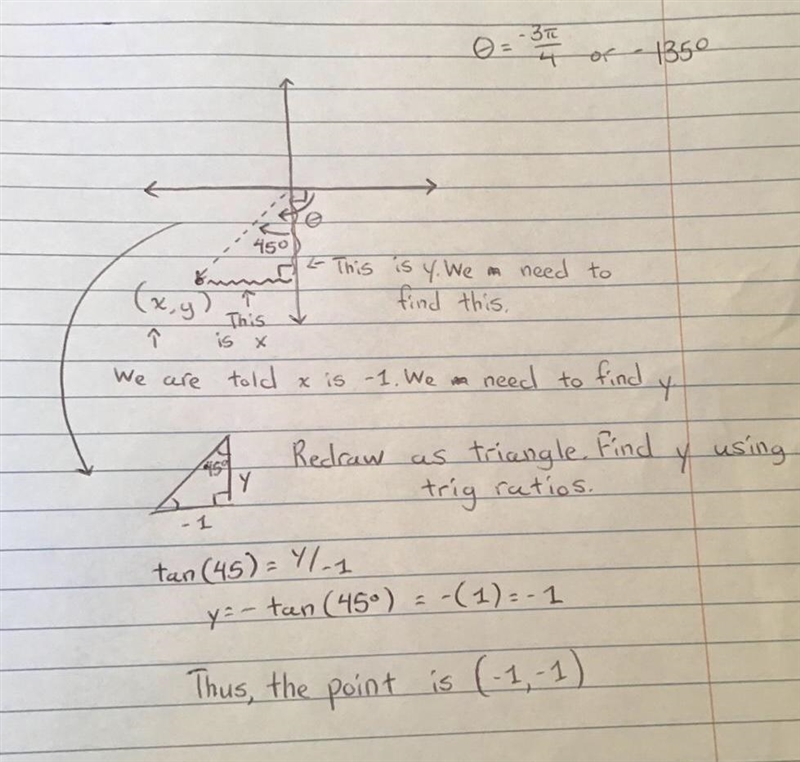 θ = -3π/4 or -135°
θ
45°
← This is y. We need to
find this.
(x,y) ↑
↑ This
is x
We are told x is -1. We need to find y
45° y
-1
Redraw as triangle. Find y using
trig ratios.
tan(45) = y/-1
y = - tan(45°) = -(1) = -1
Thus, the point is (-1,-1)